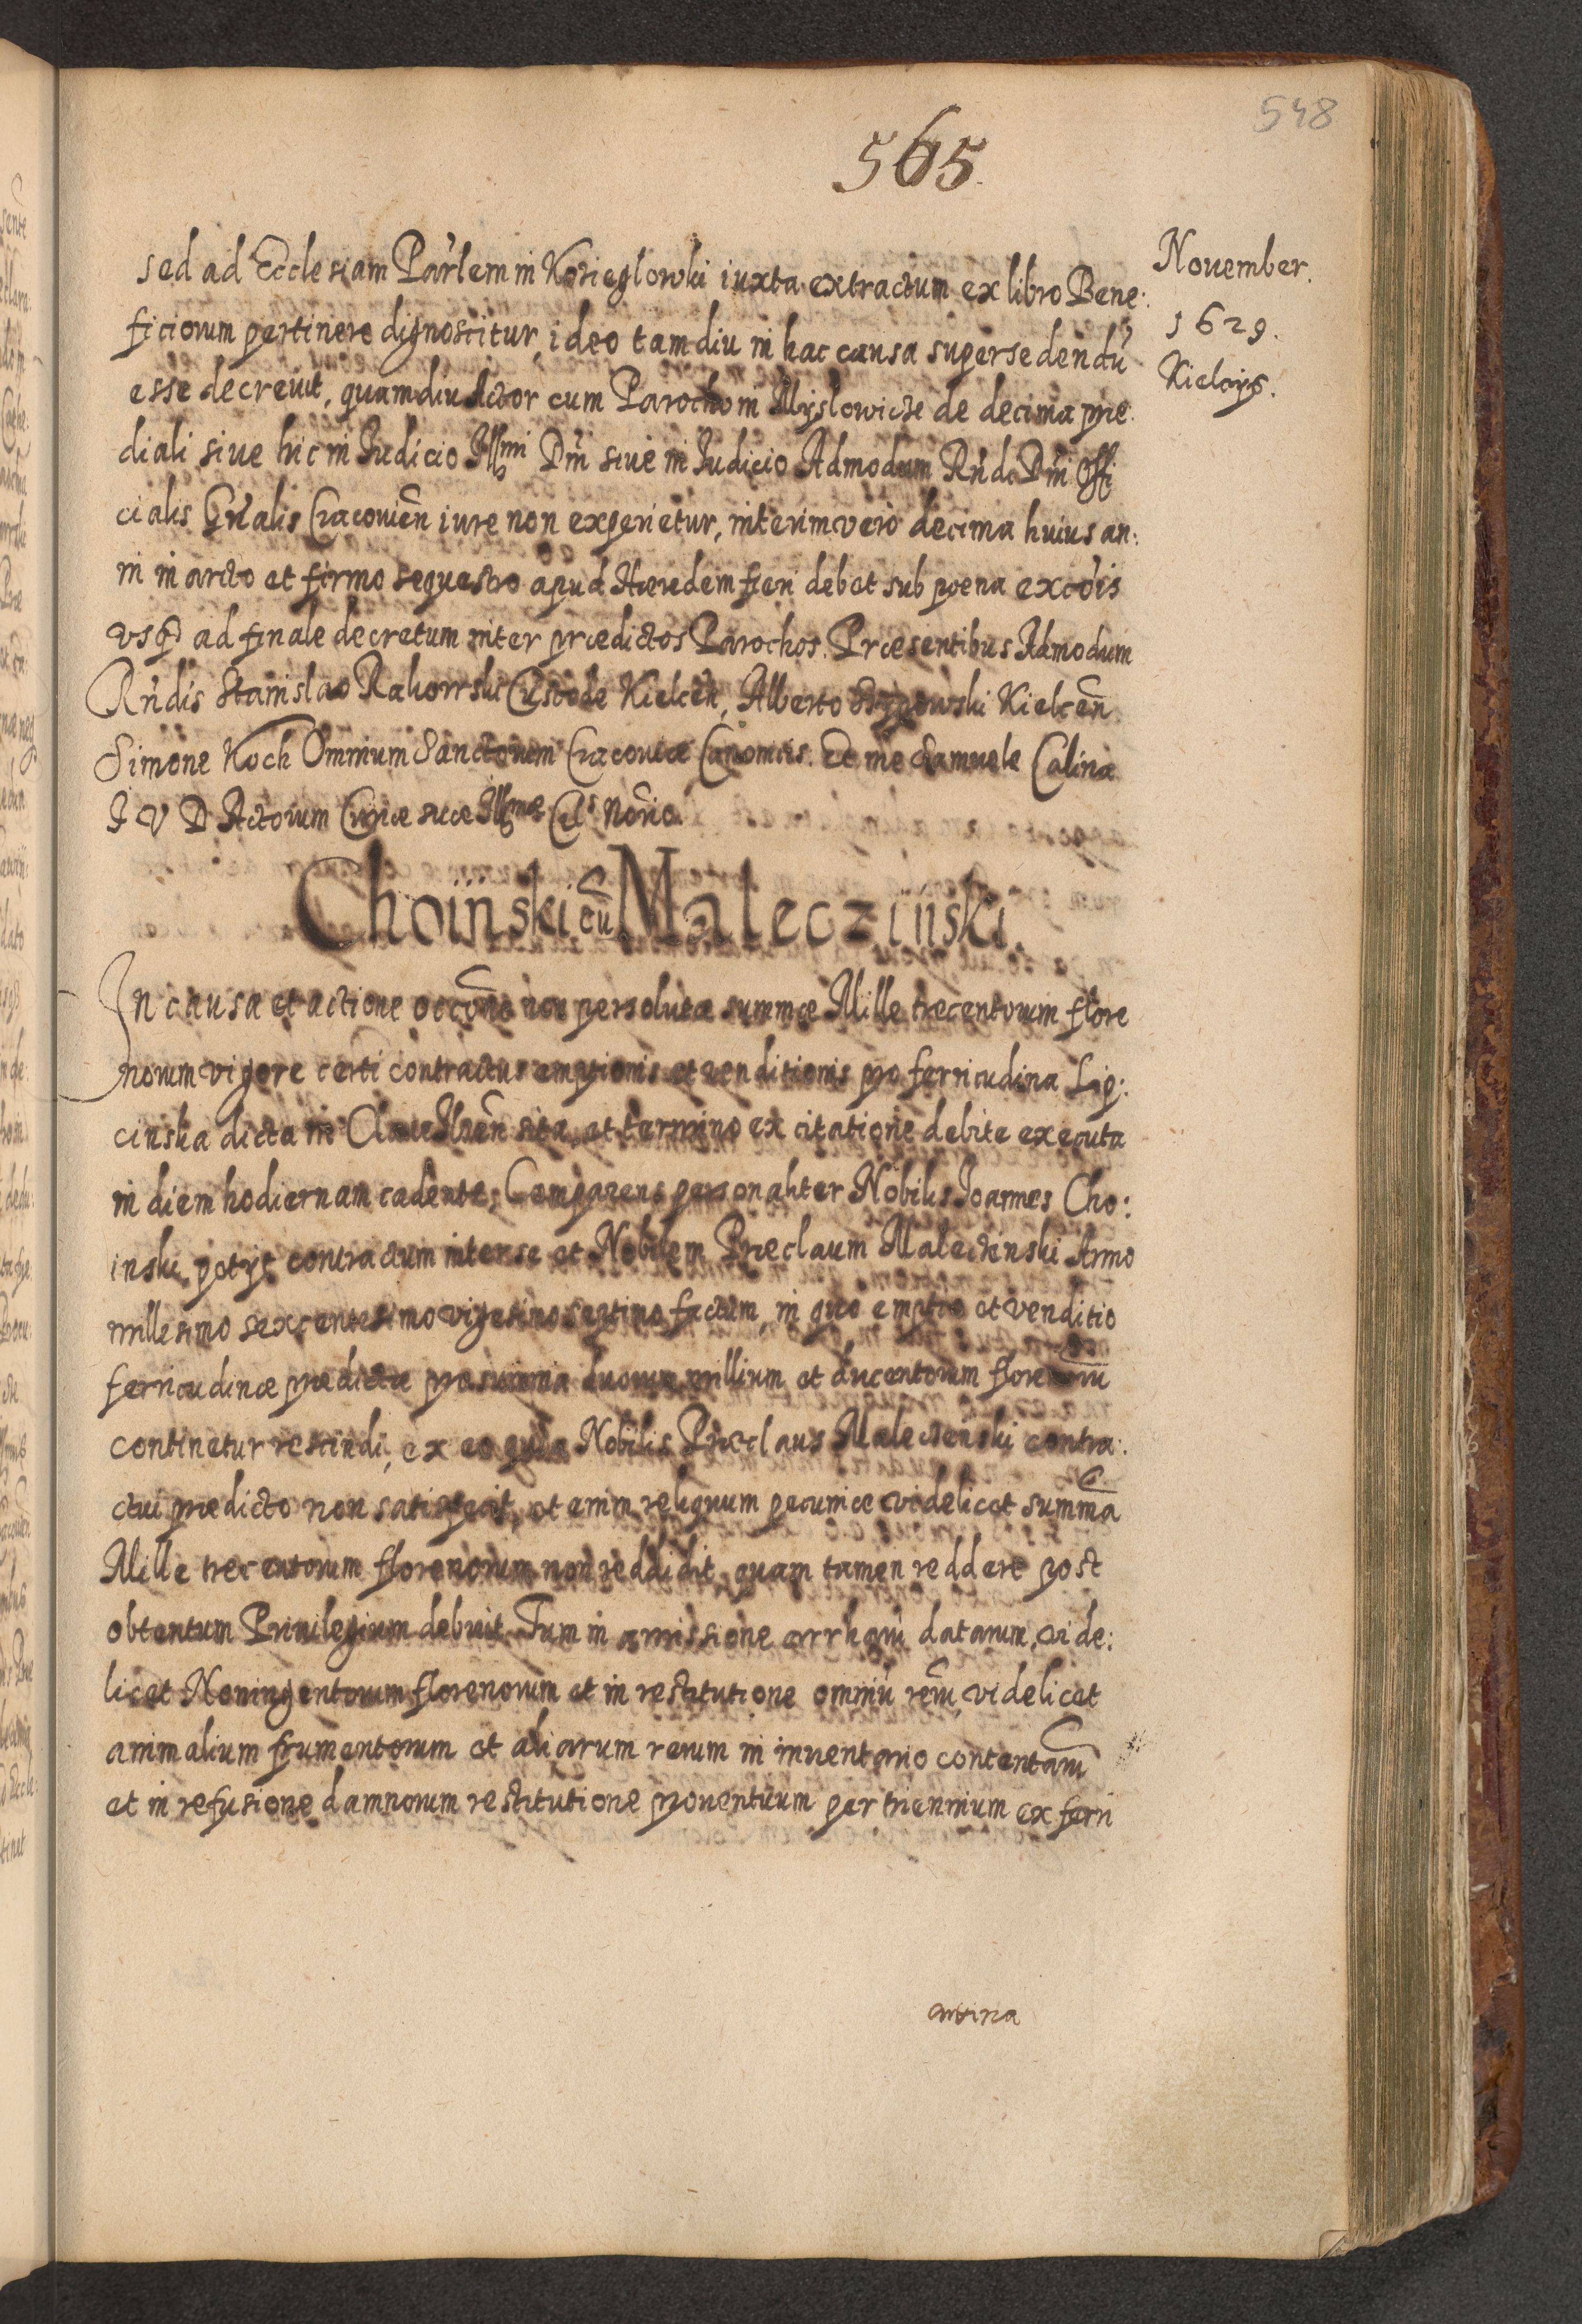 548
565.
November.
1629.
Kielcys.
sed ad Ecclesiam Par̃lem in Kozieglowki iuxta extractum ex libro Bene:
ficiorum pertinere dignoscitur, ideo tamdiu in hac causa supersedendũ
esse decreuit, quamdiu Actor cum Parocho in Myslowicze de decima prae
diali siue hic in Iudicio Illmi Dñi siue in Iudicio Admodum Rñdi Dñi Offi
cialis Gñalis Cracouien̄ iure non experietur, interim vero decima huius an:
ni in arcto et firmo sequestro apud Haeredem fieri debet sub poena excõis
vsq ad finale decretum inter praedictos Parochos. Praesentibus Admodum
Rñdis Stanislao Custode Kielcen̄, Alberto Kielcen̄
Simone Koch Omnium Sanctorum Cracouiae Canonicis. Et me Samuele Calina
I V D Actorum Curiae suae Illmae Cels Norio.
Choiinski cũ Malecziinski.
In causa et actione occõne non persolutae summae Mille trecentorum flore
norum vigore certi contractus emptionis et venditionis pro ferricudina Lip:
cinska dicta in Claue Ilzen̄ sita, et termino ex citatione debite executa
in diem hodiernam cadente, Comparens personaliter Nobilis Ioannes Cho:
inski, petyt contractum inter se et Nobilem Preclaum Maleczinski Anno
millesimo sexcentesimo vigesimo septimo factum, in quo emptio et venditio
ferricudinae praedictae pro summa duorum millium et ducentorum florenorũ
continetur rescindi, ex eo quia Nobilis Preclaus Maleczinski contra:
ctui praedicto non satisfecit, et enim reliquum pecuniae videlicet summã
Mille trecentorum florenorum non reddidit, quam tamen reddere post
obtentum Priuilegium debuit. Tum in amissione arrharũ datarum, vide:
licet Noningentorum florenorum et in restitutione omniũ rerũ, videlicet
animalium frumentorum et aliarum rerum in inuentario contentarũ
et in refusione damnorum restitutione prouentuum per triennium ex ferri